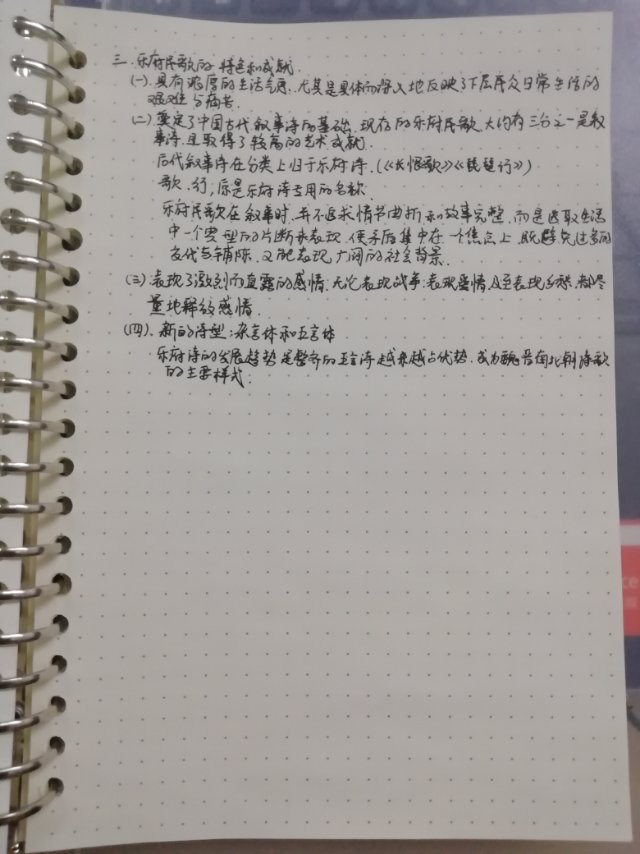 三、乐府民歌的特色和成就
(一)、具有浓厚的生活气息、尤其是具体而深入地反映了下层民众日常生活的
艰难与痛苦
(二)、奠定了中国古代叙事诗的基础、现存的乐府民歌、大约有三分之一是叙
事诗、且取得了较高的艺术成就
后代叙事诗在分类上归于乐府诗.(《长恨歌》《琵琶行》)
歌、行,原是乐府诗专用的名称
乐府民歌在叙事时、并不追求情节曲折和故事完整、而是选取生活
中一个典型的片断来表现、使矛盾集中在一个焦点上、既避免过多的
交代与铺陈、又能表现广阔的社会背景.
(三)、表现了激烈而直露的感情、无论表现战争、表现爱情、乃至表现乡愁、都尽
量地释放感情.
(四)、新的诗型:杂言体和五言体
乐府诗的发展趋势是整齐的五言诗越来越占优势、成为魏晋南北朝诗歌
的主要样式.